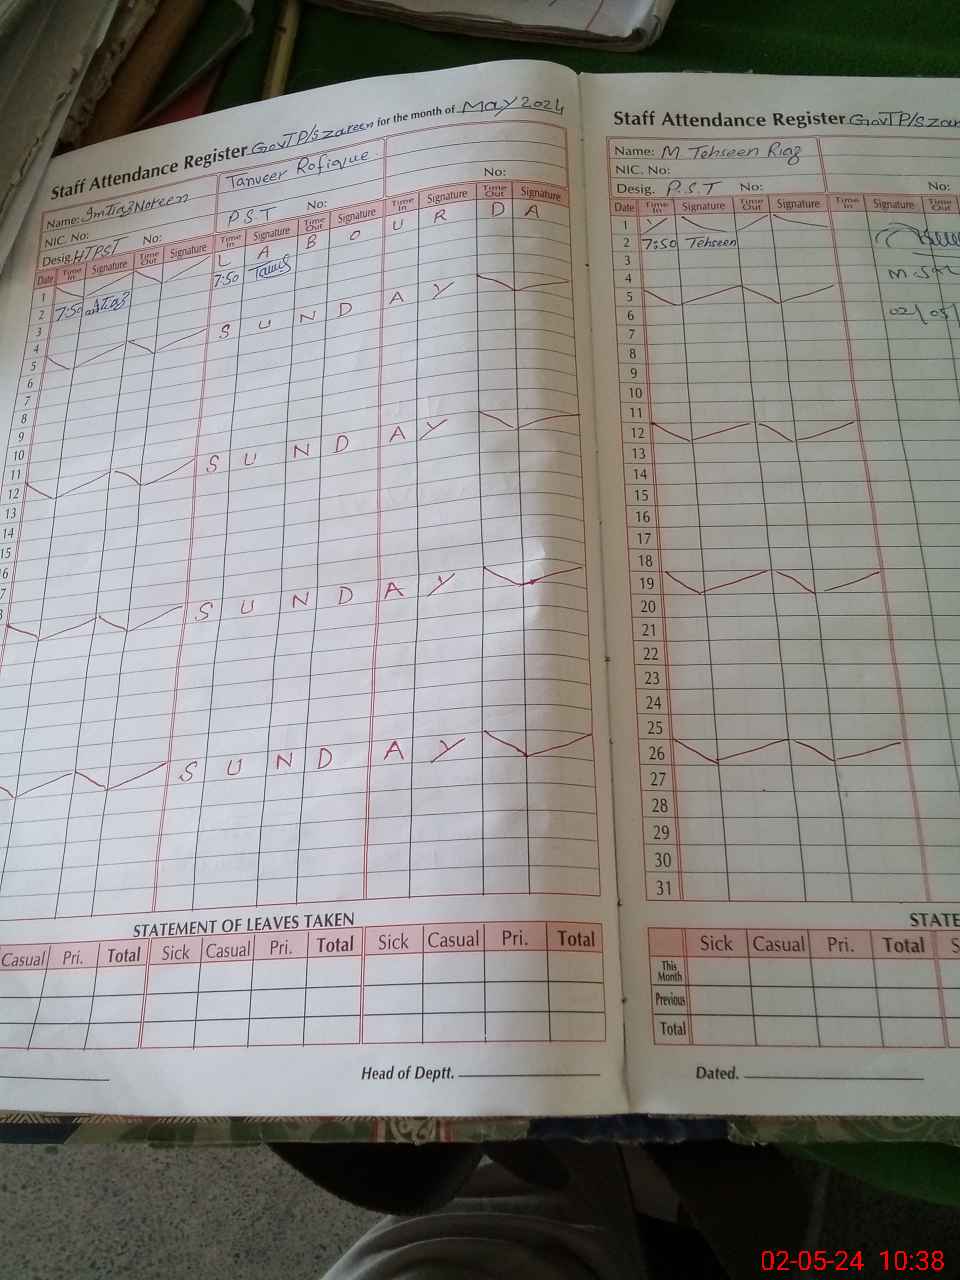 Staff Attendance Register GovT P/S Zareen for the month of May 2024
Name: ImTiaz Noreen
Tanveer Rafique
NIC. No:
Desig. HTPST No:
P.S.T No:
No:
Date Time In Signature Time Out Signature Time In Signature Time Out Signature Time In Signature Time Out Signature
1 L A B O U R D A
2 7:50 7:50
3
4
5 S U N D A Y
6
7
8
9
10
11
12 S U N D A Y
13
14
15
16
17
S U N D A Y
S U N D A Y
STATEMENT OF LEAVES TAKEN
Casual Pri. Total Sick Casual Pri. Total Sick Casual Pri. Total
Head of Deptt.
Staff Attendance Register GovT P/S Zar
Name: M Tehseen Riaz
NIC. No:
Desig. P.S.T No:
No:
Date Time In Signature Time Out Signature Time In Signature Time Out Signature
1 Y
2 7:50 Tehseen
3
4
5
6 02/05/
7
8
9
10
11
12
13
14
15
16
17
18
19
20
21
22
23
24
25
26
27
28
29
30
31
STATE
Sick Casual Pri. Total S
This Month
Previous
Total
Dated.
02-05-24 10:38